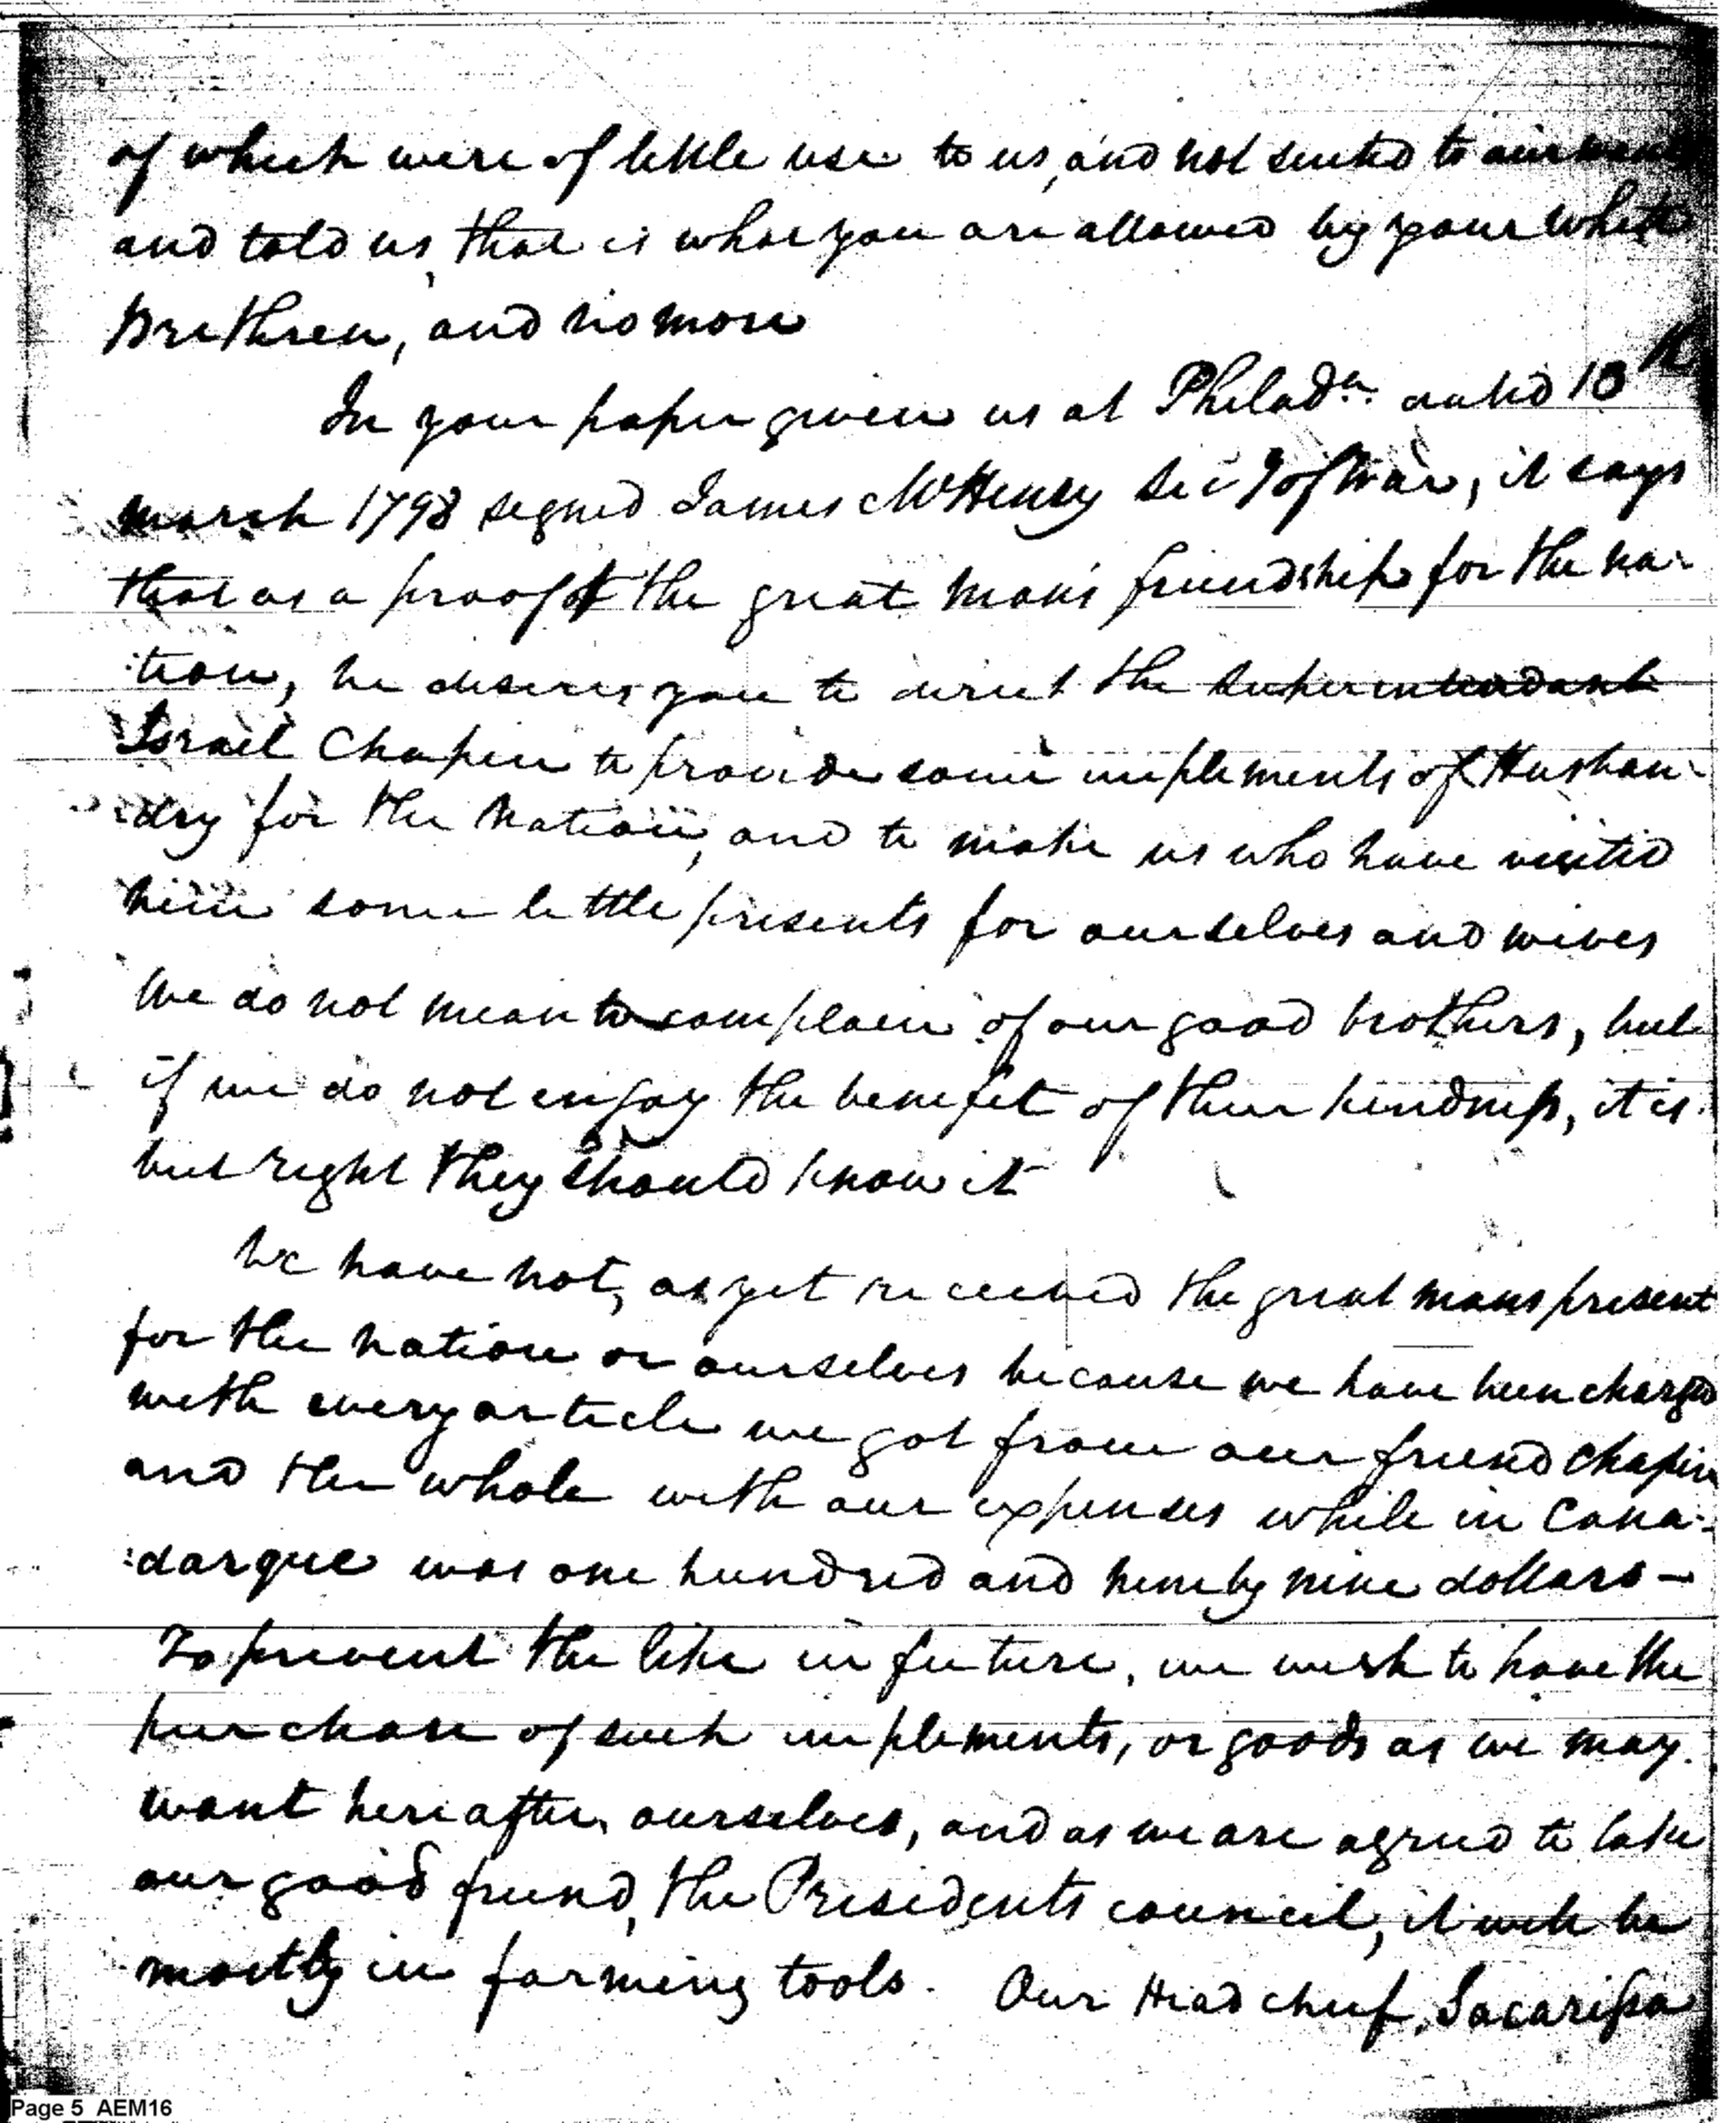 of which were of little use to us, and not suited to our wants
and told us, that is what you are allowed by your white
Brethren, and no more
In your paper given us at Philada. dated 18th
march 1798 signed James McHenry Secy of War, it says
that as a proof of the great man's friendship for the na-
tion, he desires you to direct the superintendant
Israel Chapin to provide some implements of Husban-
dry for the Nation, and to make us who have visited
him some little presents for ourselves and wives
We do not mean to complain of our good brothers, but
if we do not enjoy the benefit of their kindness, it is
but right they should know it
We have not, as yet received the great mans present
for the nation or ourselves because we have been charged
with every article we got from our friend Chapin
and the whole with our expenses while in Cana-
darque was one hundred and ninety nine dollars -
To prevent the like in future, we wish to have the
purchase of such implements, or goods as we may
want hereafter ourselves, and as we are agreed to take
our good friend, the Presidents council, it will be
mostly in farming tools. Our Head chief, Sacarissa
Page 5 AEM16